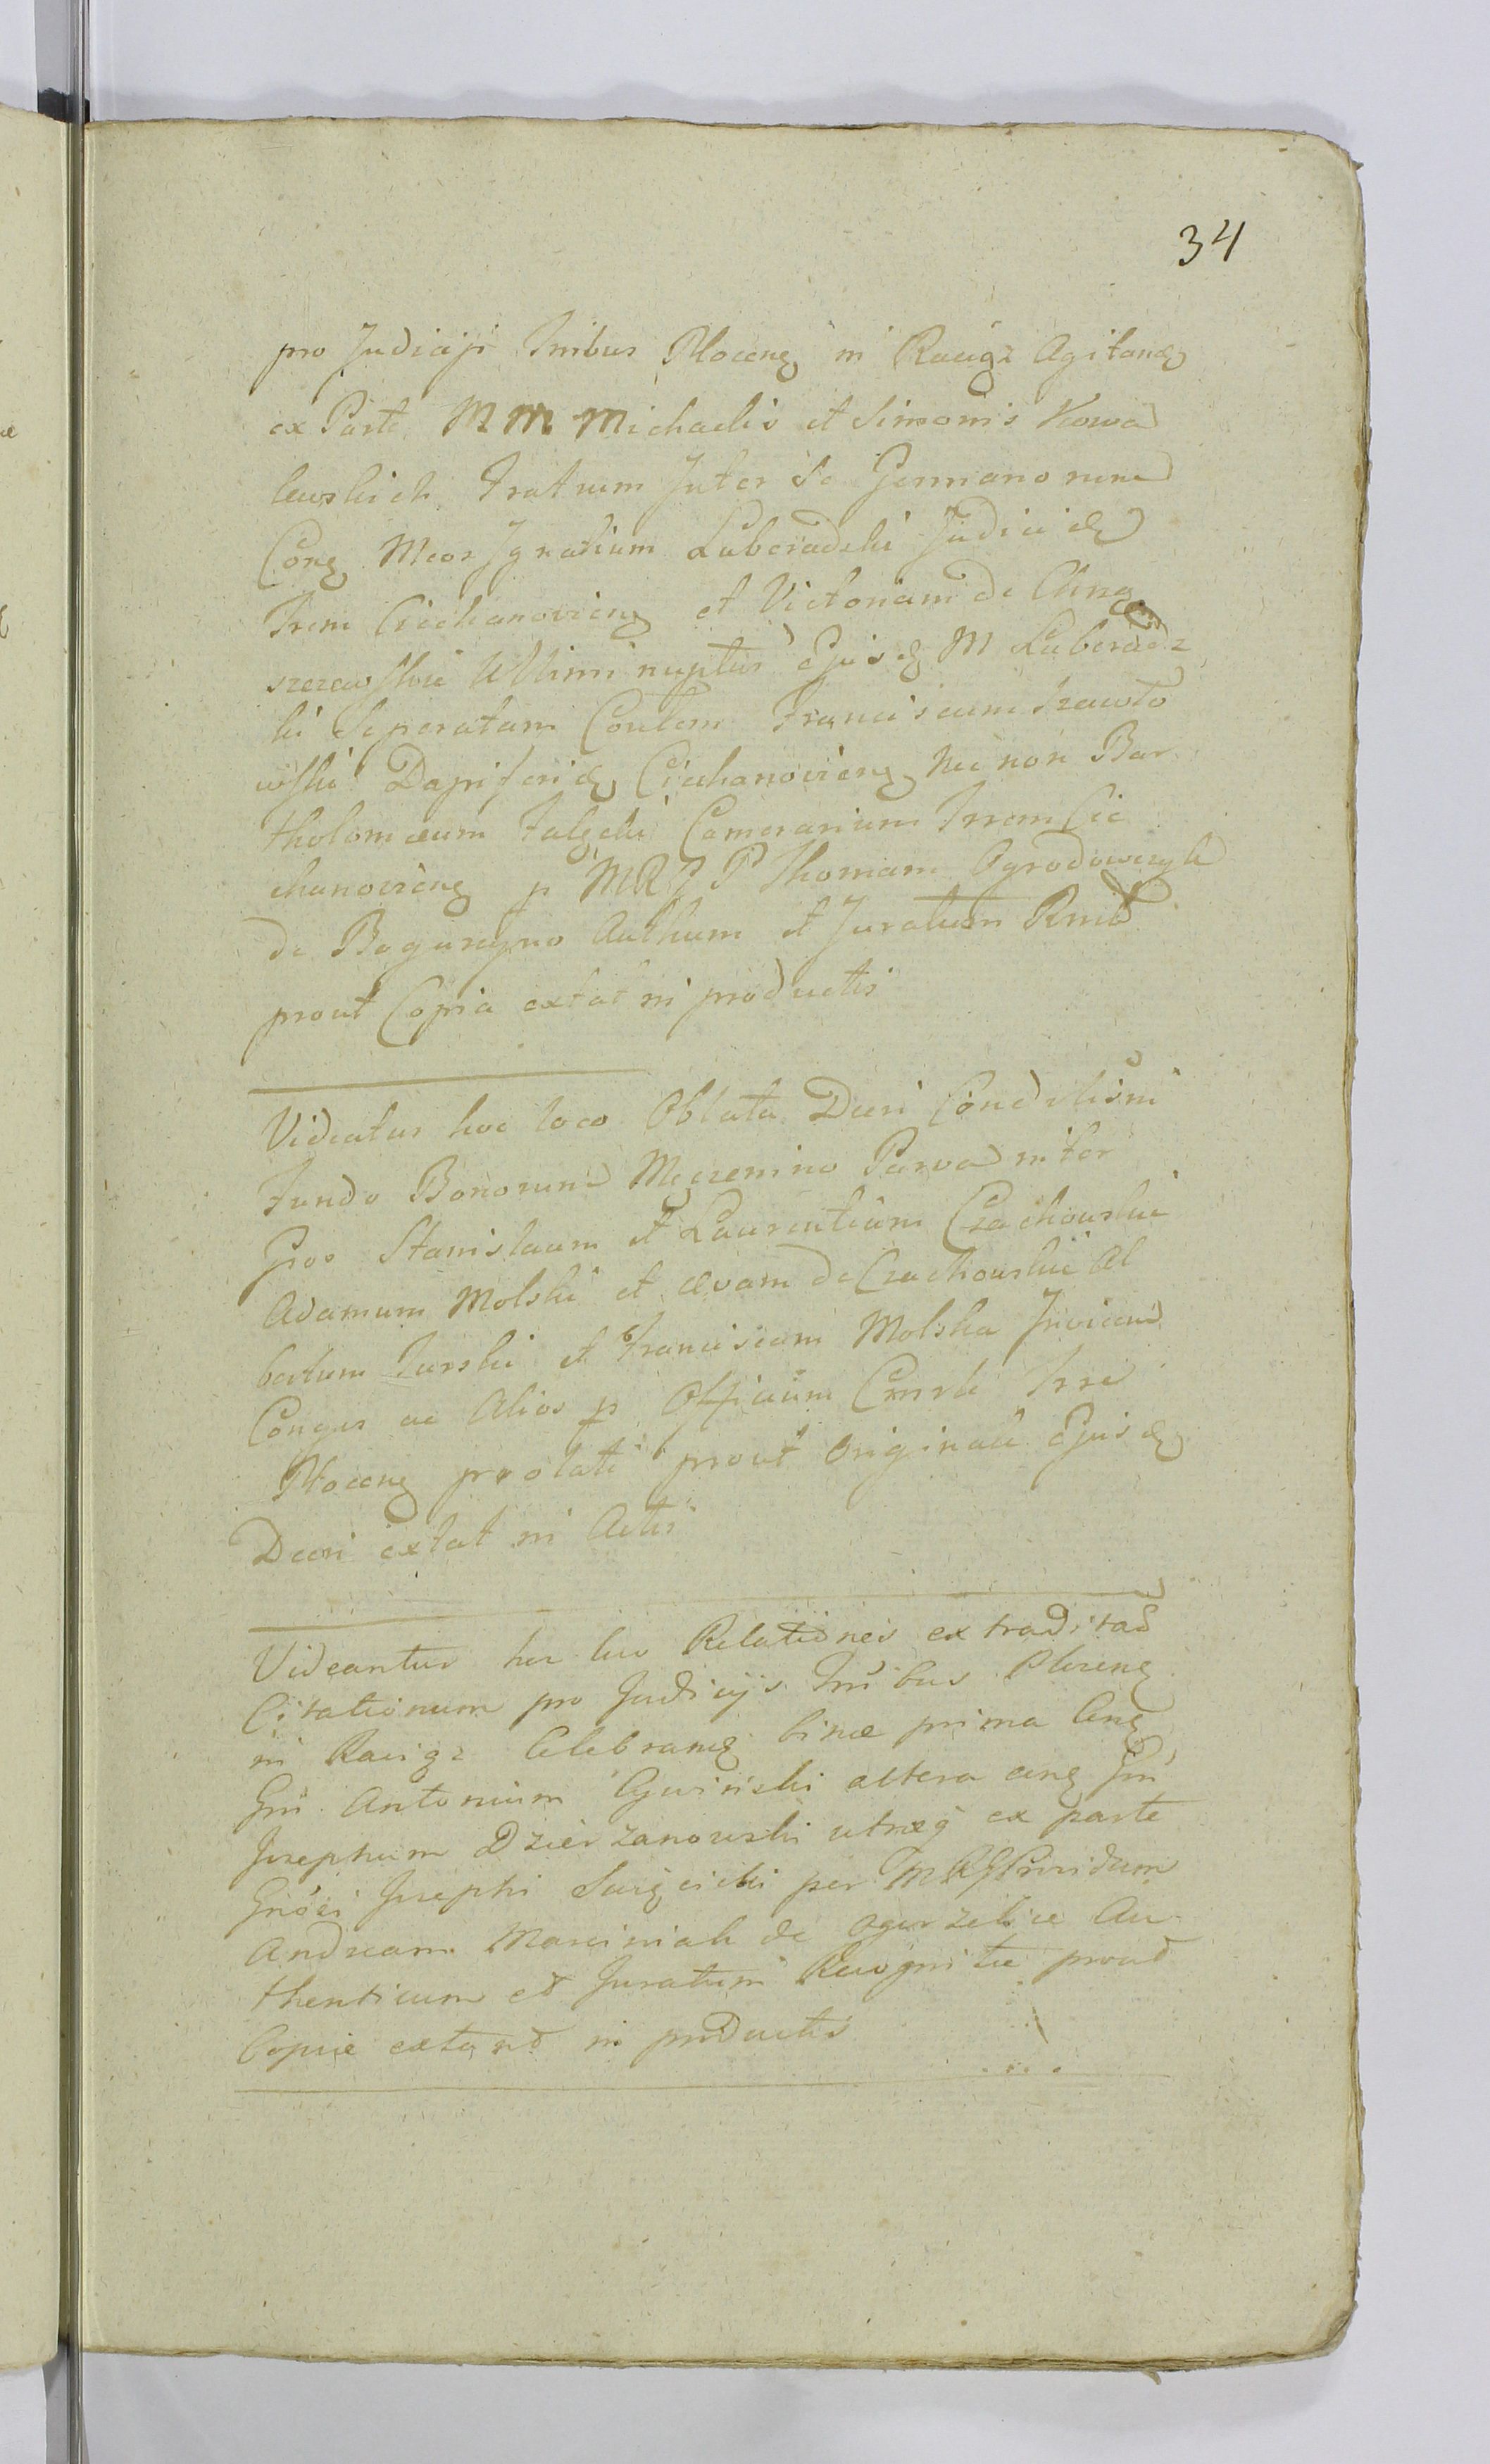 34
pro Judicijs Trribus Plocen in Raciąż Agitan
ex Parte MM Michaelis et Simonis Kowa
lewskich Fratrum Inter Se Germanorum
Con Mcos Ignatium Luberadzki Judicid
Trrem Ciechanovien et Victoriam de
szczewskie Ultimi nuptus Ejusd M Luberadz
ki Seperatam Contem Franciscum
wski Dapiferid Ciechanovien nec non Bar
tholomæum Falęcki Camerarium Trrem Cie
chanovien p MRGP Thomam Ogrodowczyk
de Bogurzyno Authum et Juratum Rmit
prout Copia extat in productis
Videatur hoc loco Oblata Decri Condelis in
Fundo Bonorum Męczenino Parva inter
Gnos Stanislaum et Laurentium Czachowskie
Adamum Molski et Evam de Czachowskie Al
bertum Turski et Franciscam Molska Invicem
Conges ac Alios p Officium Trre
Plocen prolati prout Originale Ejusd
Decri extat in Actis
Videantur hoc loco Relationes extraditad
Citationum pro Judicijs Trribus Plocen
in Raciąż Celebran binæ prima Con
Gm Antonium altera con Gm
Josephum Dzierzanowski utraq ex parte
Gnosi Josephi Święcicki per MRGProvidum
Andream Marciniak de Ogorzelice Au
thenticum et Juratum Recognitæ prout
Copiæ extant in productis